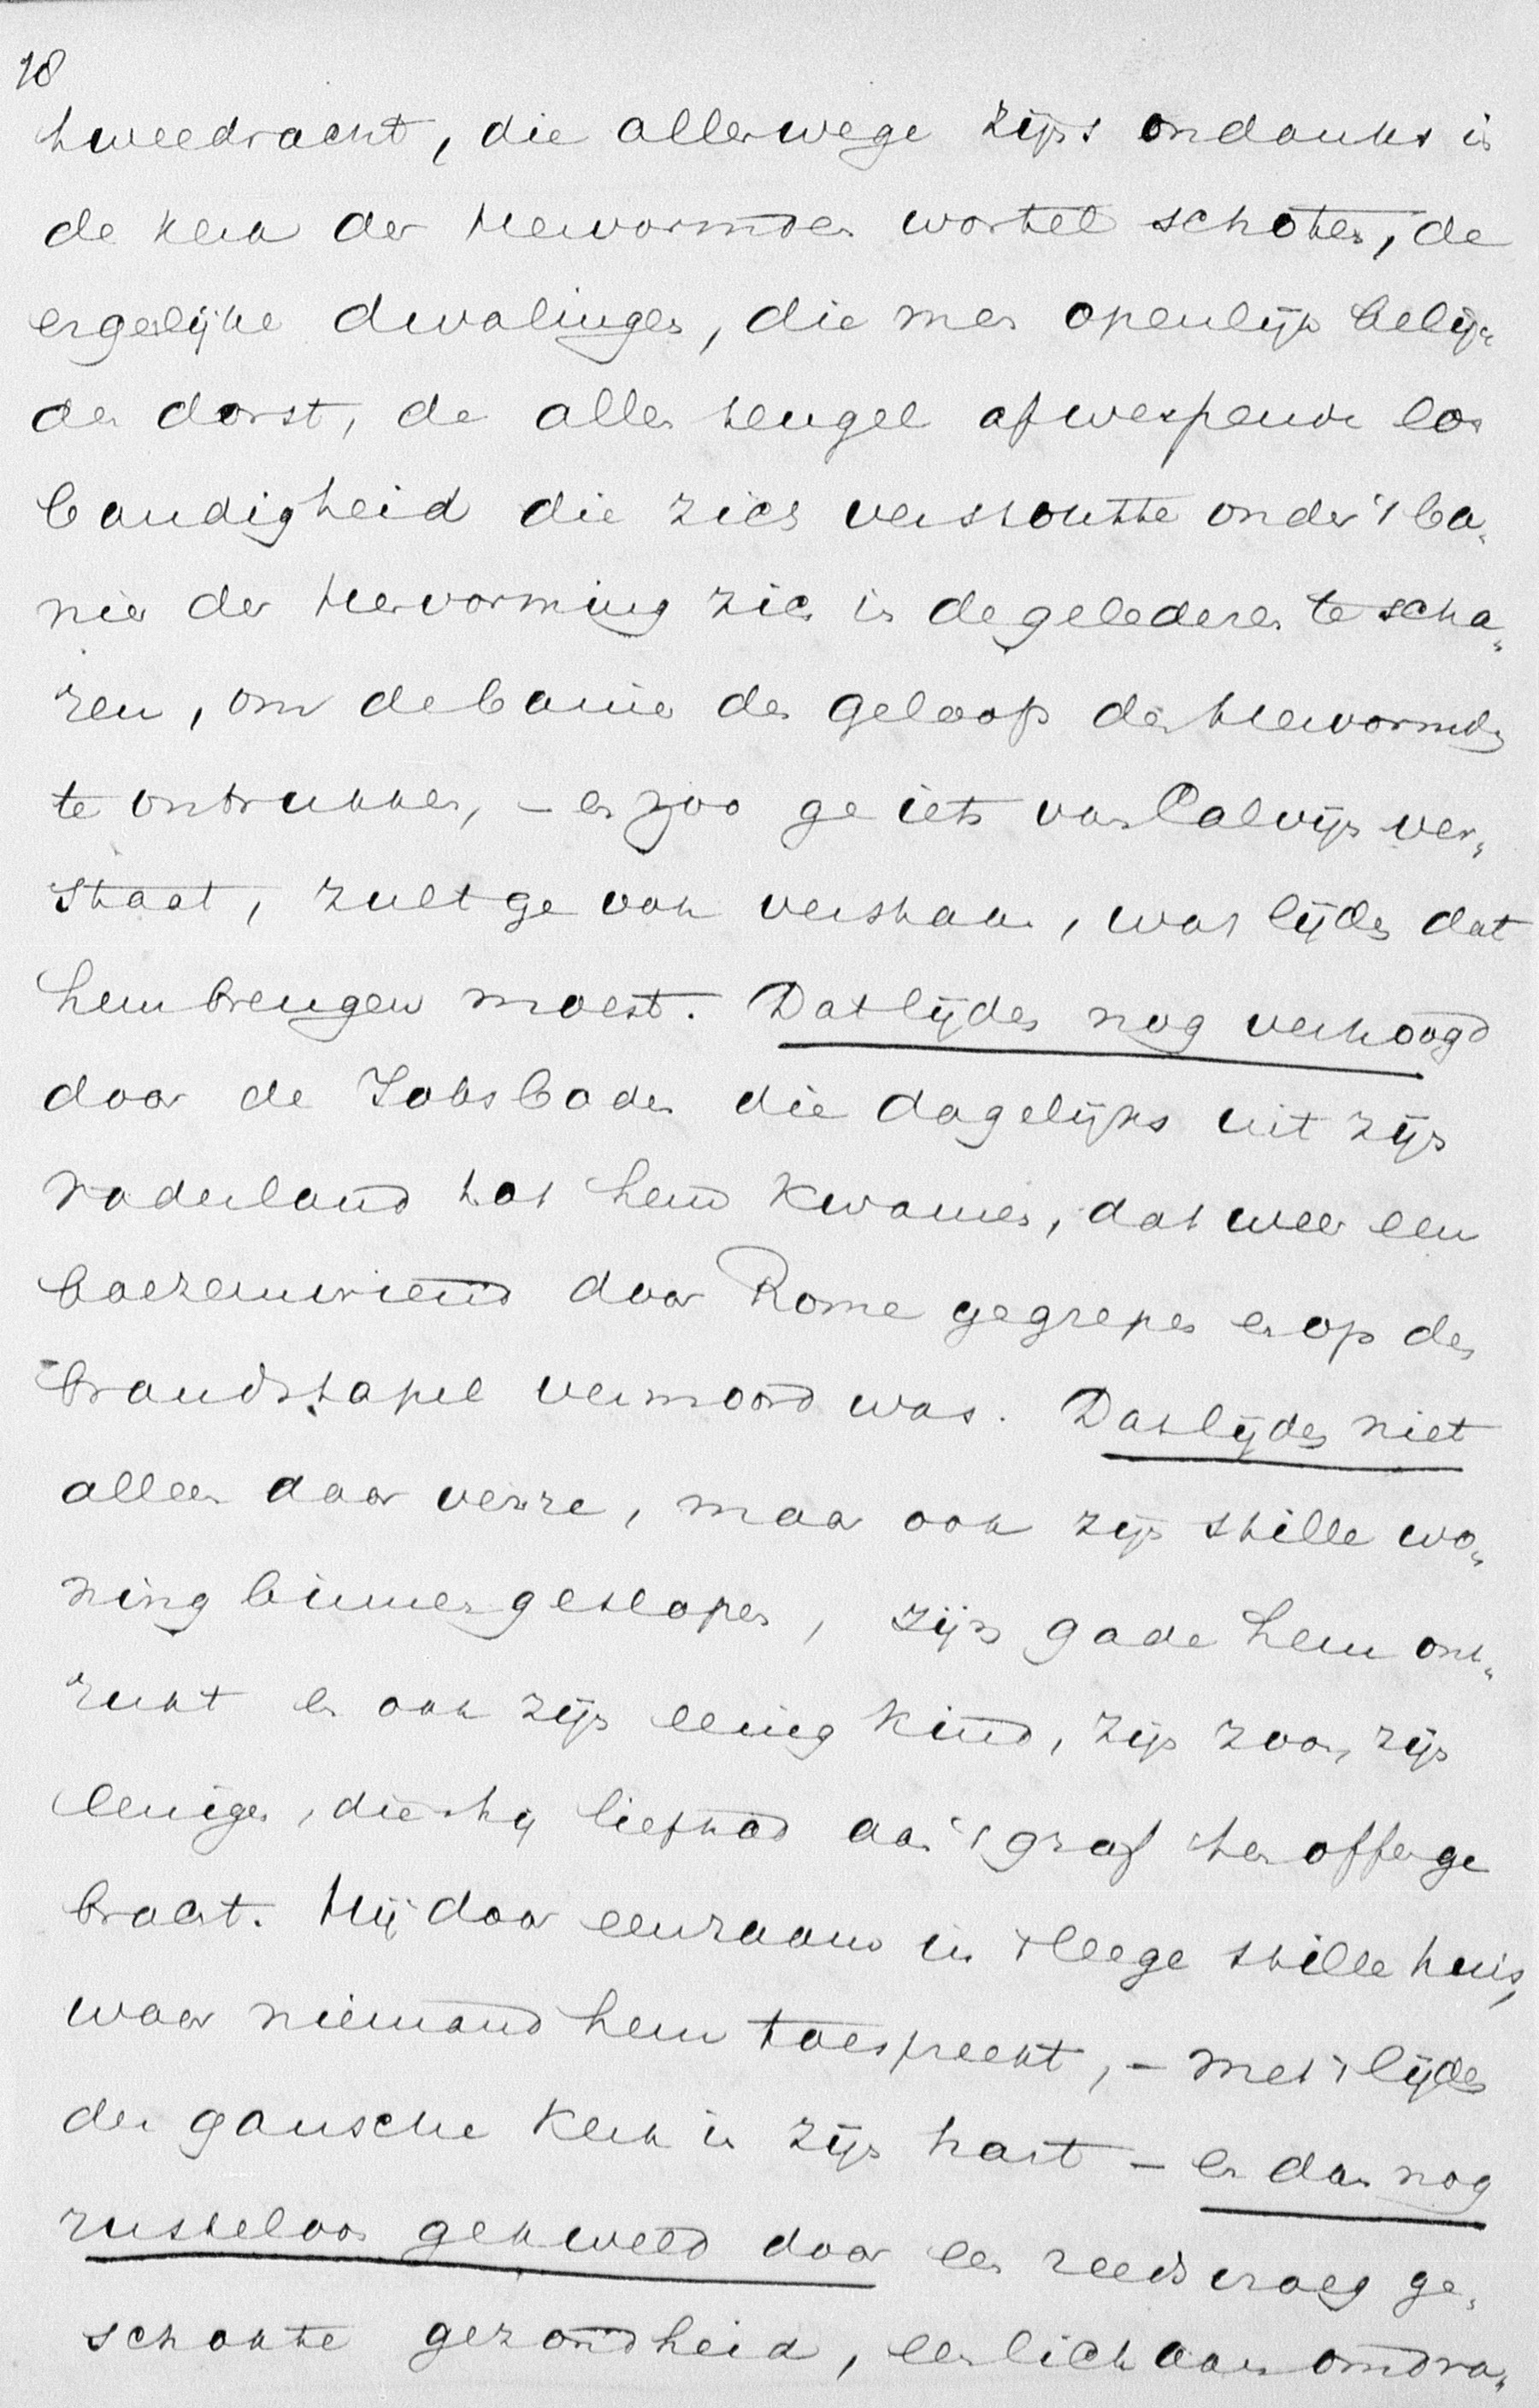 18
tweedracht, die allerwege zijns ondanks in
de kerk der Hervormden wortel schoten, de
ergerlijke dwalingen, die men openlijk belij„
den dorst, de allen teugel afwerpende los
bandigheid die zich verstoutte onder 't ba„
nier der Hervorming zich in de gelederen te scha„
ren, om de banier des geloofs der Hervormden
te ontrukken, – en zoo ge iets van Calvijn ver„
staat, zult ge ook verstaan, wat lijden dat
hem brengen moest. Dat lijden nog verhoogd
door de Jobsboden die dagelijks uit zijn
vaderland tot hem kwamen, dat weer een
boezemvriend door Rome gegrepen en op den
brandstapel vermoord was. Dat lijden niet
alleen daar verre, maar ook zijn stille wo„
ning binnengeslopen, zijn gade hem ont„
rukt en ook zijn eenig kind, zijn zoon, zijn
eenige, dien hij liefhad aan 't graf ten offer ge
bracht. Hij daar eenzaam in 't leege stille huis,
waar niemand hem toespreekt, – met 't lijden
der gansche kerk in zijn hart – en dan nog
rusteloos gekweld door een reeds vroeg ge„
schokte gezondheid, een lichaam omdra„